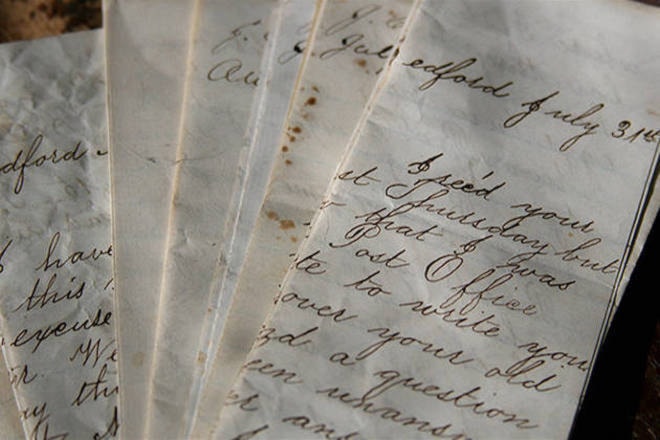 dford
have
this
excuse
r. We
ay thi
J.
Au
J.
J. Jul
edford July 31st
I rec'd your
st Thursday but
that I was
Post Office
te to write you
over your old
nd a question
een unansw
er an